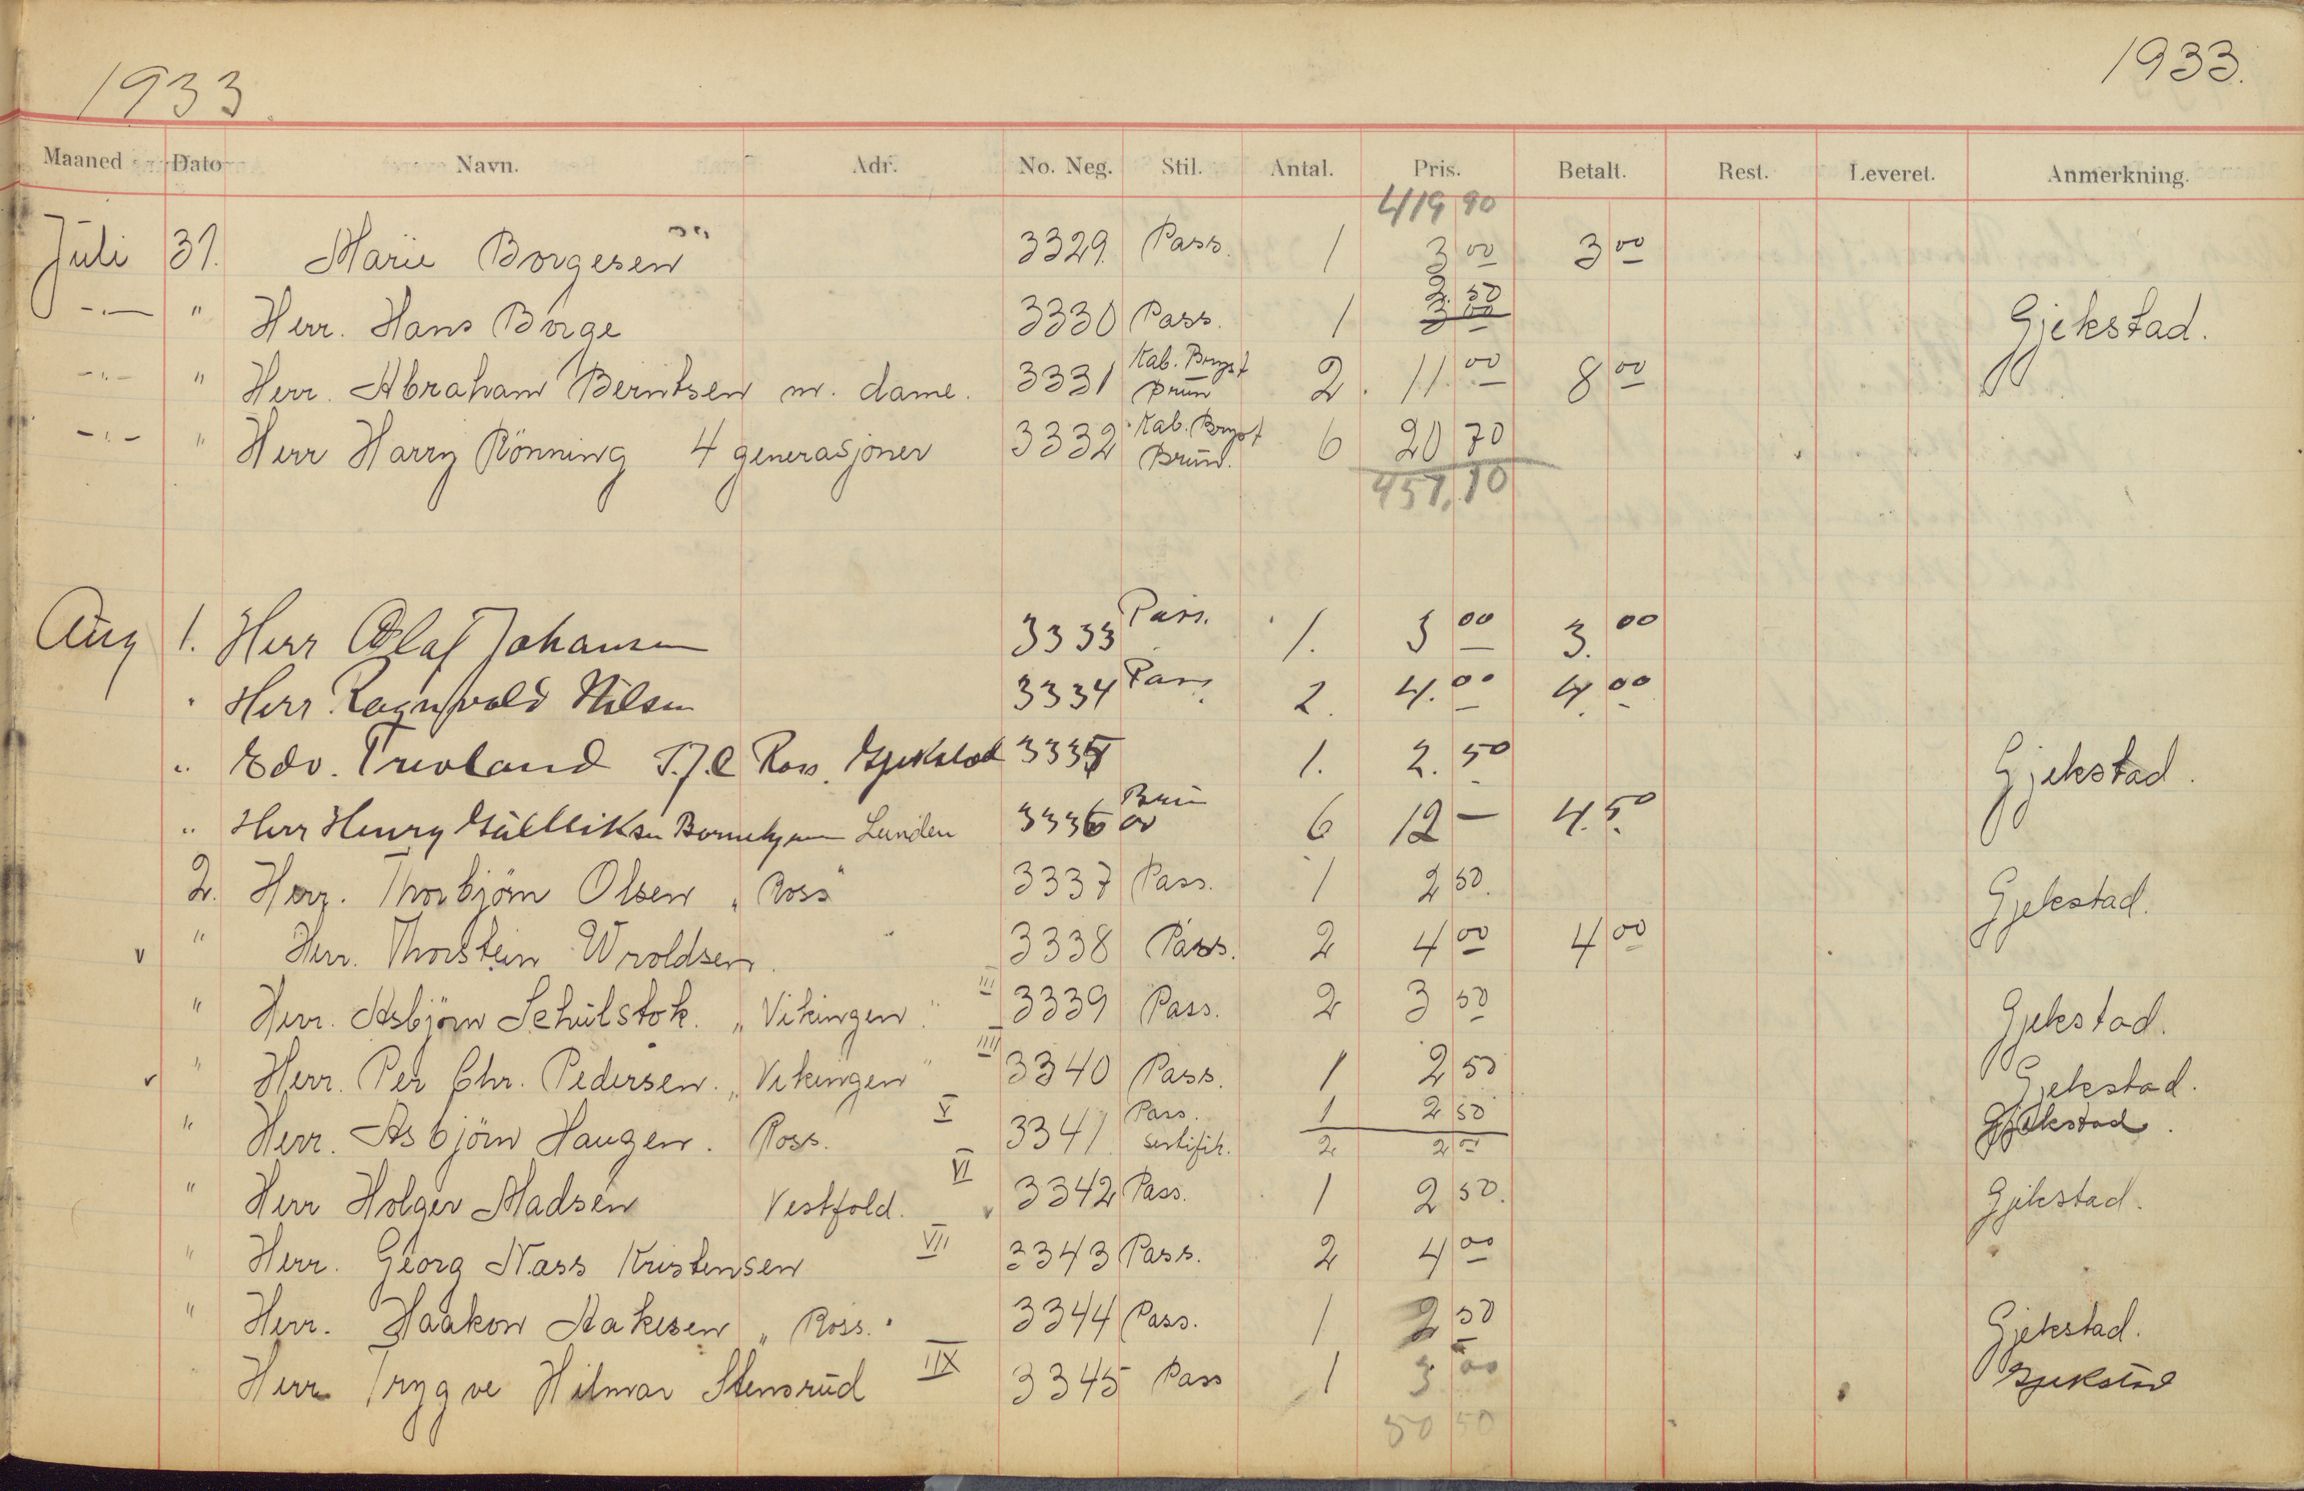 1933. 1933.
Maaned Dato Navn. Adr. No. Neg. Stil. Antal. Pris. Betalt. Rest. Leveret. Anmerkning.
419 90
Juli 31. Marie Borgesen 3329. Pass. 1 3 00 3 00
2. 50
-"- " Herr. Hans Borge 3330 Pass. 1 3 00 Gjekstad.
-"- " Herr. Abraham Berntsen m. dame. 3331 Kab. Bryst Brun 2. 11 00 8 00
-"- " Herr Harry Rönning 4 generasjoner 3332 Kab. Bryst Brun. 6 20 70
457.10
Aug 1. Herr Olaf Johansen 3333 Pass. 1. 3 00 3. 00
" Herr Ragnvald Nilsen 3334 Pass. 2. 4. 00 4. 00
" Edv. Trevland T.J.C Ross. Gjekstad 3335 1. 2. 50 Gjekstad.
" Herr Henry Gülliksen Lunden 3336 Brun 6 12 — 4. 50
2. Herr. Thorbjörn Olsen "Ross" 3337 Pass. 1 2 50. Gjekstad.
v " Herr. Thorstein Wroldsen. 3338 Pass. 2 4 00 4 00
" Herr. Asbjörn Schulstok. "Vikingen" III 3339 Pass. 2 3 50 Gjekstad.
v " Herr. Per Chr. Pedersen. "Vikingen" IIII 3340 Pass. 1 2 50 Gjekstad.
" Herr. Asbjörn Haugen. Ross. V 3341 Pass. 1 2 50 Gjekstad.
sertifik. 2 2 00
" Herr Holger Madsen Vestfold. VI v 3342 Pass. 1 2 50. Gjekstad.
" Herr. Georg Næss Kristensen VII 3343 Pass. 2 4 00
" Herr. Haakon Aakesen "Ross." 3344 Pass. 1 2 50 Gjekstad.
Herr. Trygve Hilmar Stensrud IIX 3345 Pass 1 3 00 Gjekstad
50 50